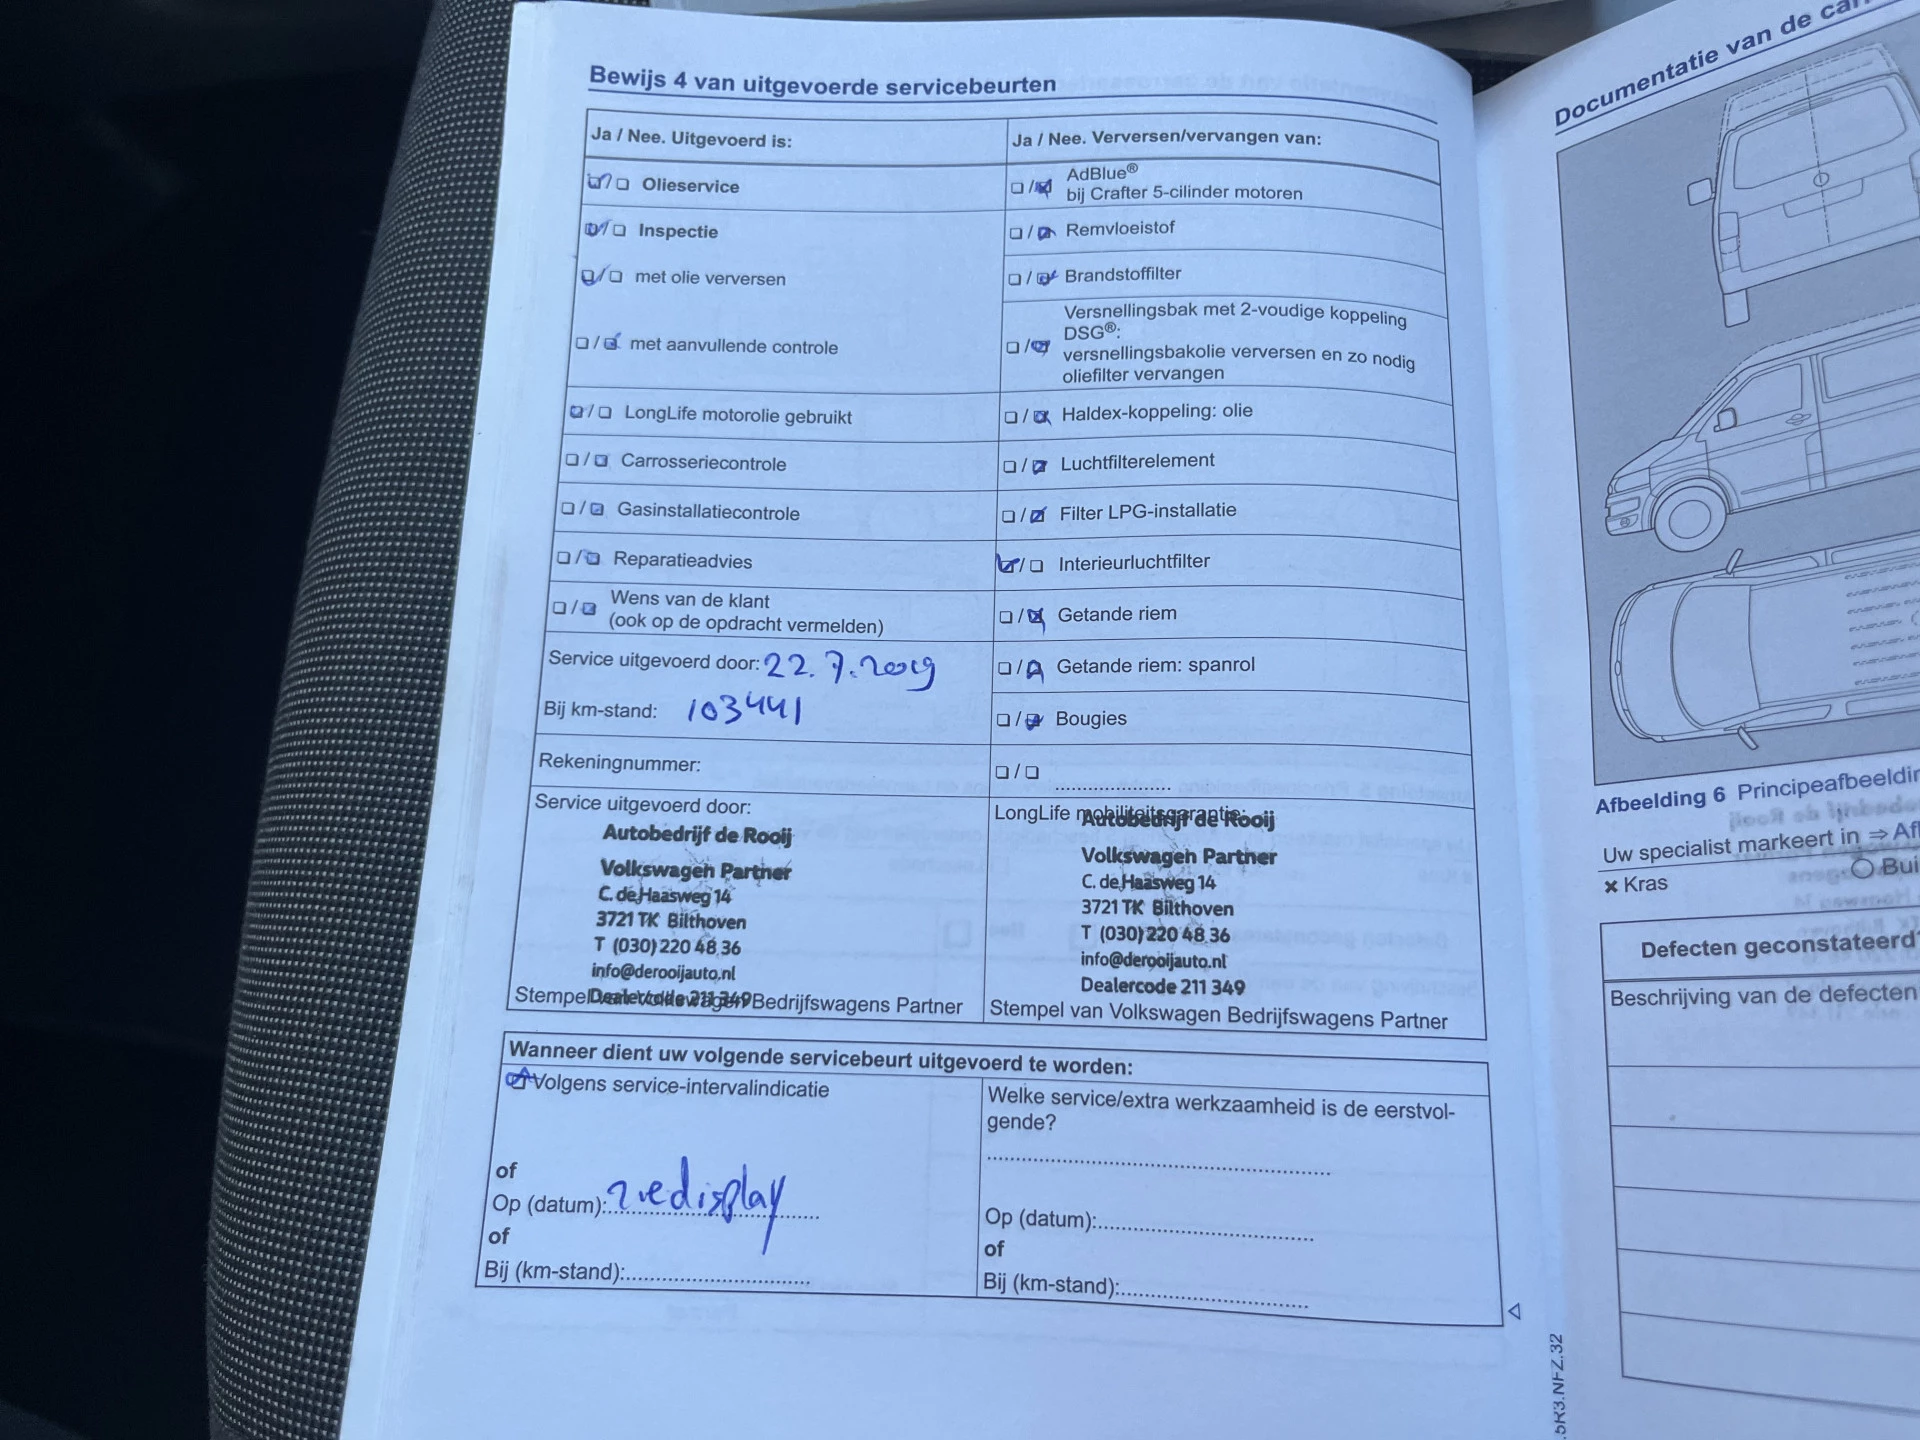 Bewijs 4 van uitgevoerde servicebeurten
Ja / Nee. Uitgevoerd is:
Olieservice
Inspectie
met olie verversen
met aanvullende controle
LongLife motorolie gebruikt
Carrosseriecontrole
Gasinstallatiecontrole
Reparatieadvies
Wens van de klant
(ook op de opdracht vermelden)
Service uitgevoerd door: 22.7.2019
Bij km-stand: 103441
Rekeningnummer:
Service uitgevoerd door:
Autobedrijf de Rooij
Volkswagen Partner
C. de Haasweg 14
3721 TK Bilthoven
T (030) 220 48 36
info@derooijauto.nl
Dealercode 211 349
Stempel van Volkswagen Bedrijfswagens Partner
Ja / Nee. Verversen/vervangen van:
AdBlue®
bij Crafter 5-cilinder motoren
Remvloeistof
Brandstoffilter
Versnellingsbak met 2-voudige koppeling
DSG®:
versnellingsbakolie verversen en zo nodig
oliefilter vervangen
Haldex-koppeling: olie
Luchtfilterelement
Filter LPG-installatie
Interieurluchtfilter
Getande riem
Getande riem: spanrol
Bougies
LongLife mobiliteitsgarantie:
Autobedrijf de Rooij
Volkswagen Partner
C. de Haasweg 14
3721 TK Bilthoven
T (030) 220 48 36
info@derooijauto.nl
Dealercode 211 349
Stempel van Volkswagen Bedrijfswagens Partner
Wanneer dient uw volgende servicebeurt uitgevoerd te worden:
Volgens service-intervalindicatie
of
Op (datum): zie display
of
Bij (km-stand):
Welke service/extra werkzaamheid is de eerstvol-
gende?
Op (datum):
of
Bij (km-stand):
Documentatie van de
Afbeelding 6
Uw specialist markeert in ⇒
× Kras
Defecten geconstateerd
Beschrijving van de defecten
.5R3.NFZ.32